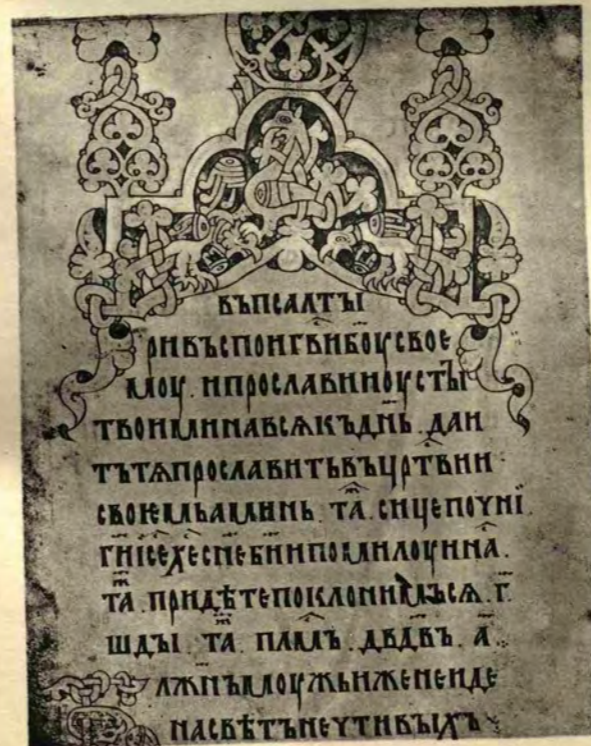 въпсалты
ривъспоигв҃ибоусвое
моу · ипрославиноусты
твоиминавсѧкъдн҃ь · даи
тътѧпрославитьвъцр҃твии ·
своѥмьаминь · та҃ · сицепоуні ·
гн҃іс҃ех҃есн҃еб҃ниипомилоуина҃ ·
та҃ · придѣтепоклонимъсѧ · г҃ ·
шды · та҃ · плм҃ъ · дв҃двъ · а҃ ·
лжн҃ъмоужьиженеиде
насвѣтънеутивыхъ